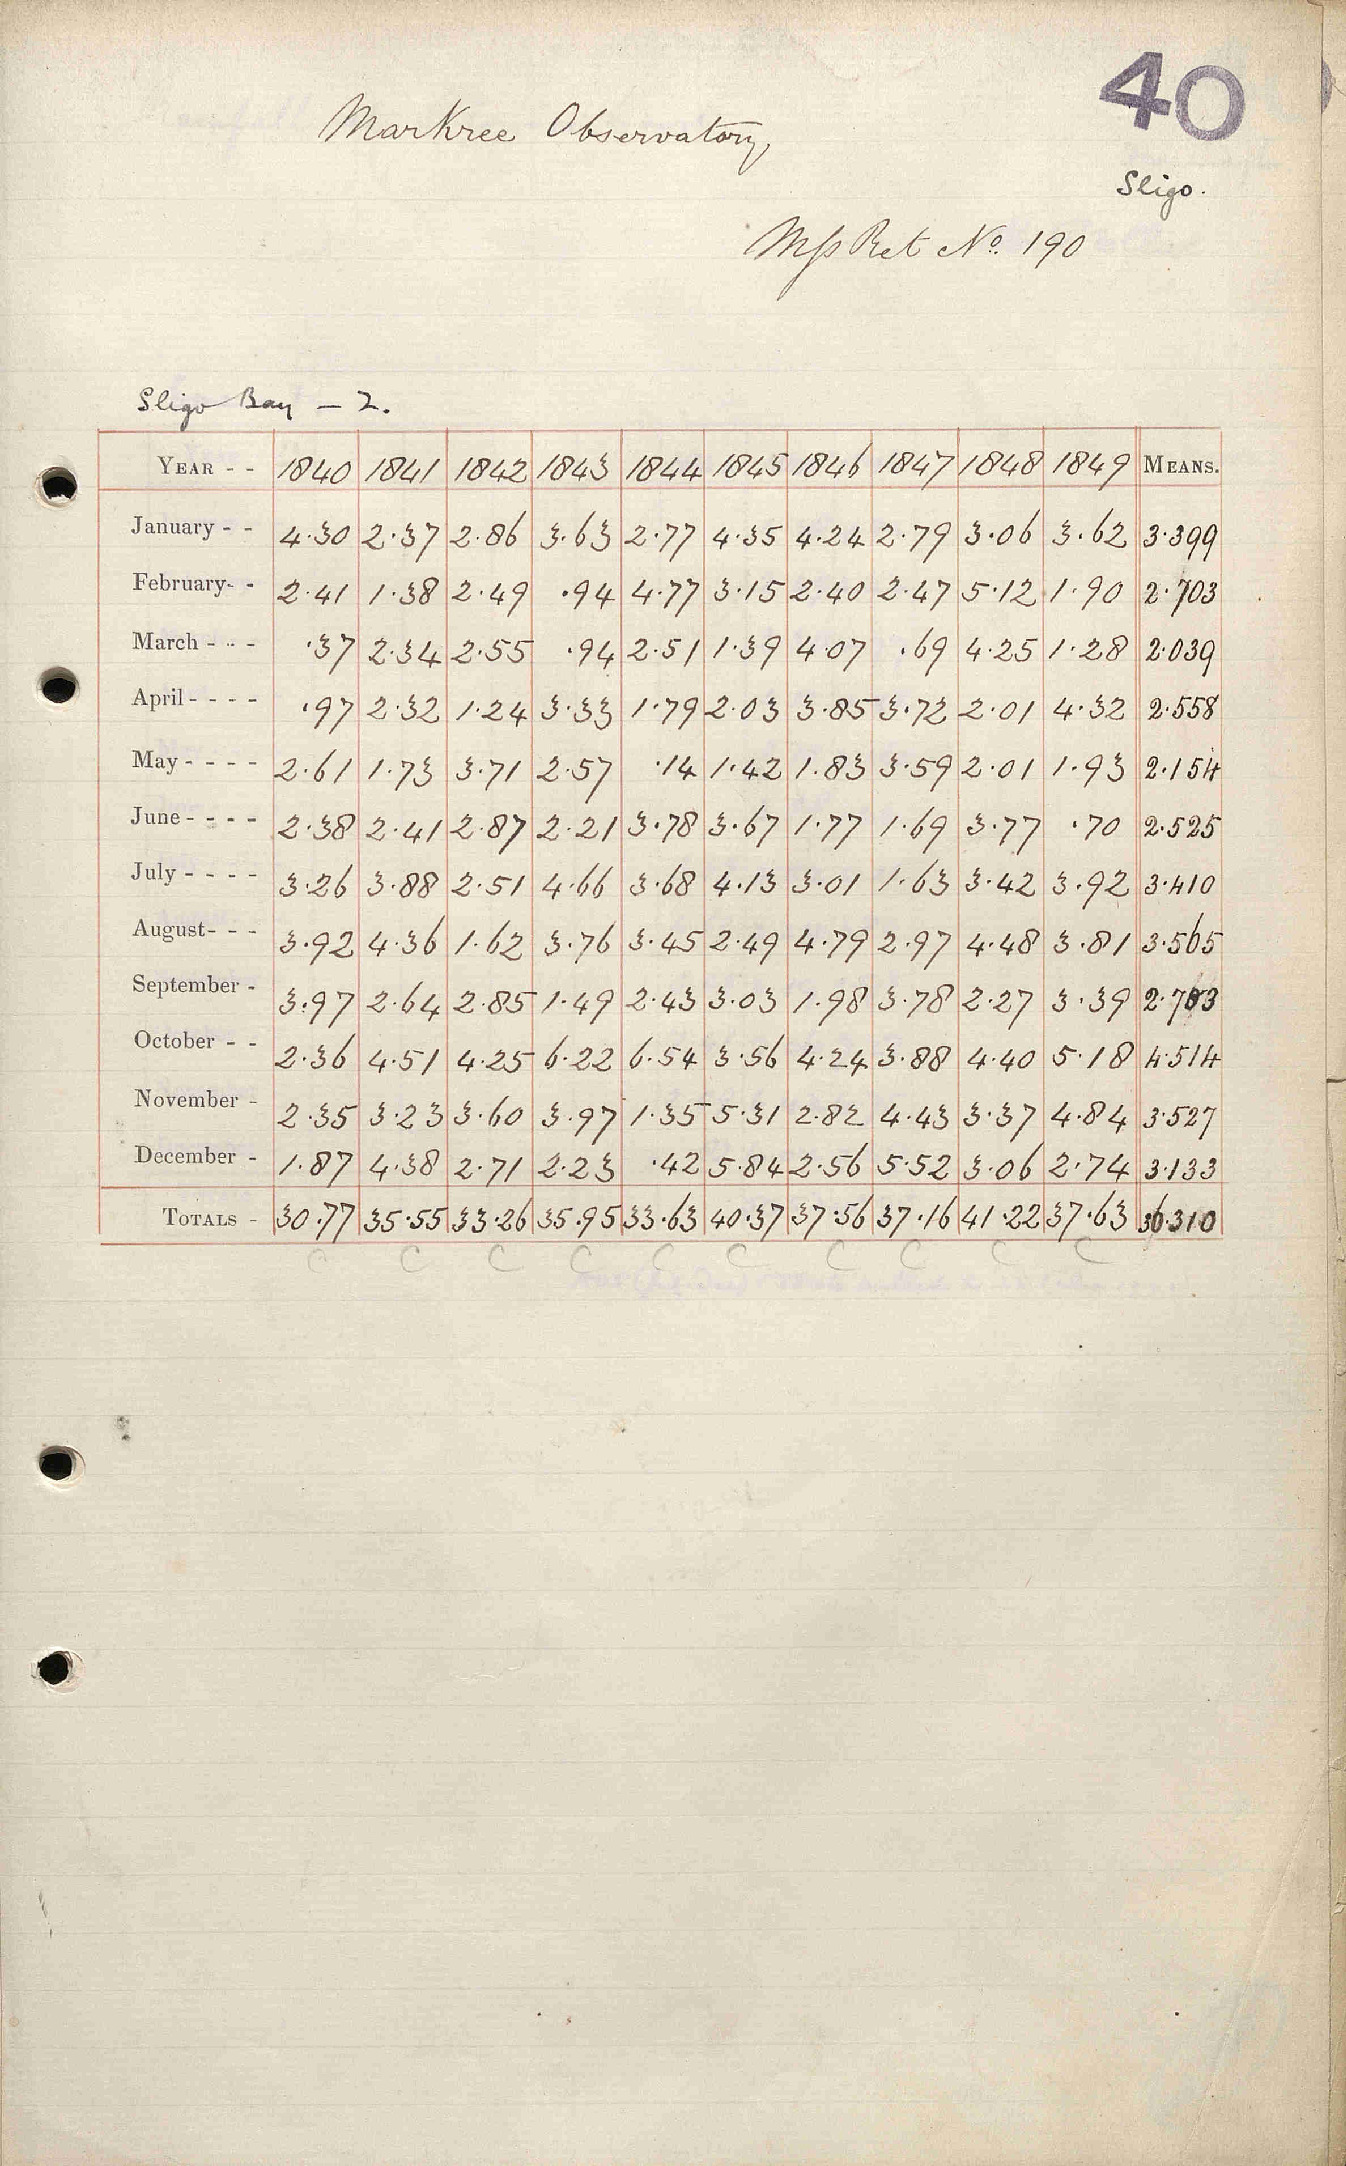 40
Markree Observatory,
Sligo.
Mss Ret No. 190
Sligo Bay – 2.
YEAR - - 1840 1841 1842 1843 1844 1845 1846 1847 1848 1849 MEANS.
January - - 4.30 2.37 2.86 3.63 2.77 4.35 4.24 2.79 3.06 3.62 3.399
February- - 2.41 1.38 2.49 .94 4.77 3.15 2.40 2.47 5.12 1.90 2.703
March - - - .37 2.34 2.55 .94 2.51 1.39 4.07 .69 4.25 1.28 2.039
April - - - - .97 2.32 1.24 3.33 1.79 2.03 3.85 3.72 2.01 4.32 2.558
May - - - - 2.61 1.73 3.71 2.57 .14 1.42 1.83 3.59 2.01 1.93 2.154
June - - - - 2.38 2.41 2.87 2.21 3.78 3.67 1.77 1.69 3.77 .70 2.525
July - - - - 3.26 3.88 2.51 4.66 3.68 4.13 3.01 1.63 3.42 3.92 3.410
August- - - 3.92 4.36 1.62 3.76 3.45 2.49 4.79 2.97 4.48 3.81 3.565
September - 3.97 2.64 2.85 1.49 2.43 3.03 1.98 3.78 2.27 3.39 2.783
October - - 2.36 4.51 4.25 6.22 6.54 3.56 4.24 3.88 4.40 5.18 4.514
November - 2.35 3.23 3.60 3.97 1.35 5.31 2.82 4.43 3.37 4.84 3.527
December - 1.87 4.38 2.71 2.23 .42 5.84 2.56 5.52 3.06 2.74 3.133
TOTALS - 30.77 35.55 33.26 35.95 33.63 40.37 37.56 37.16 41.22 37.63 36.310
C C C C C C C C C C